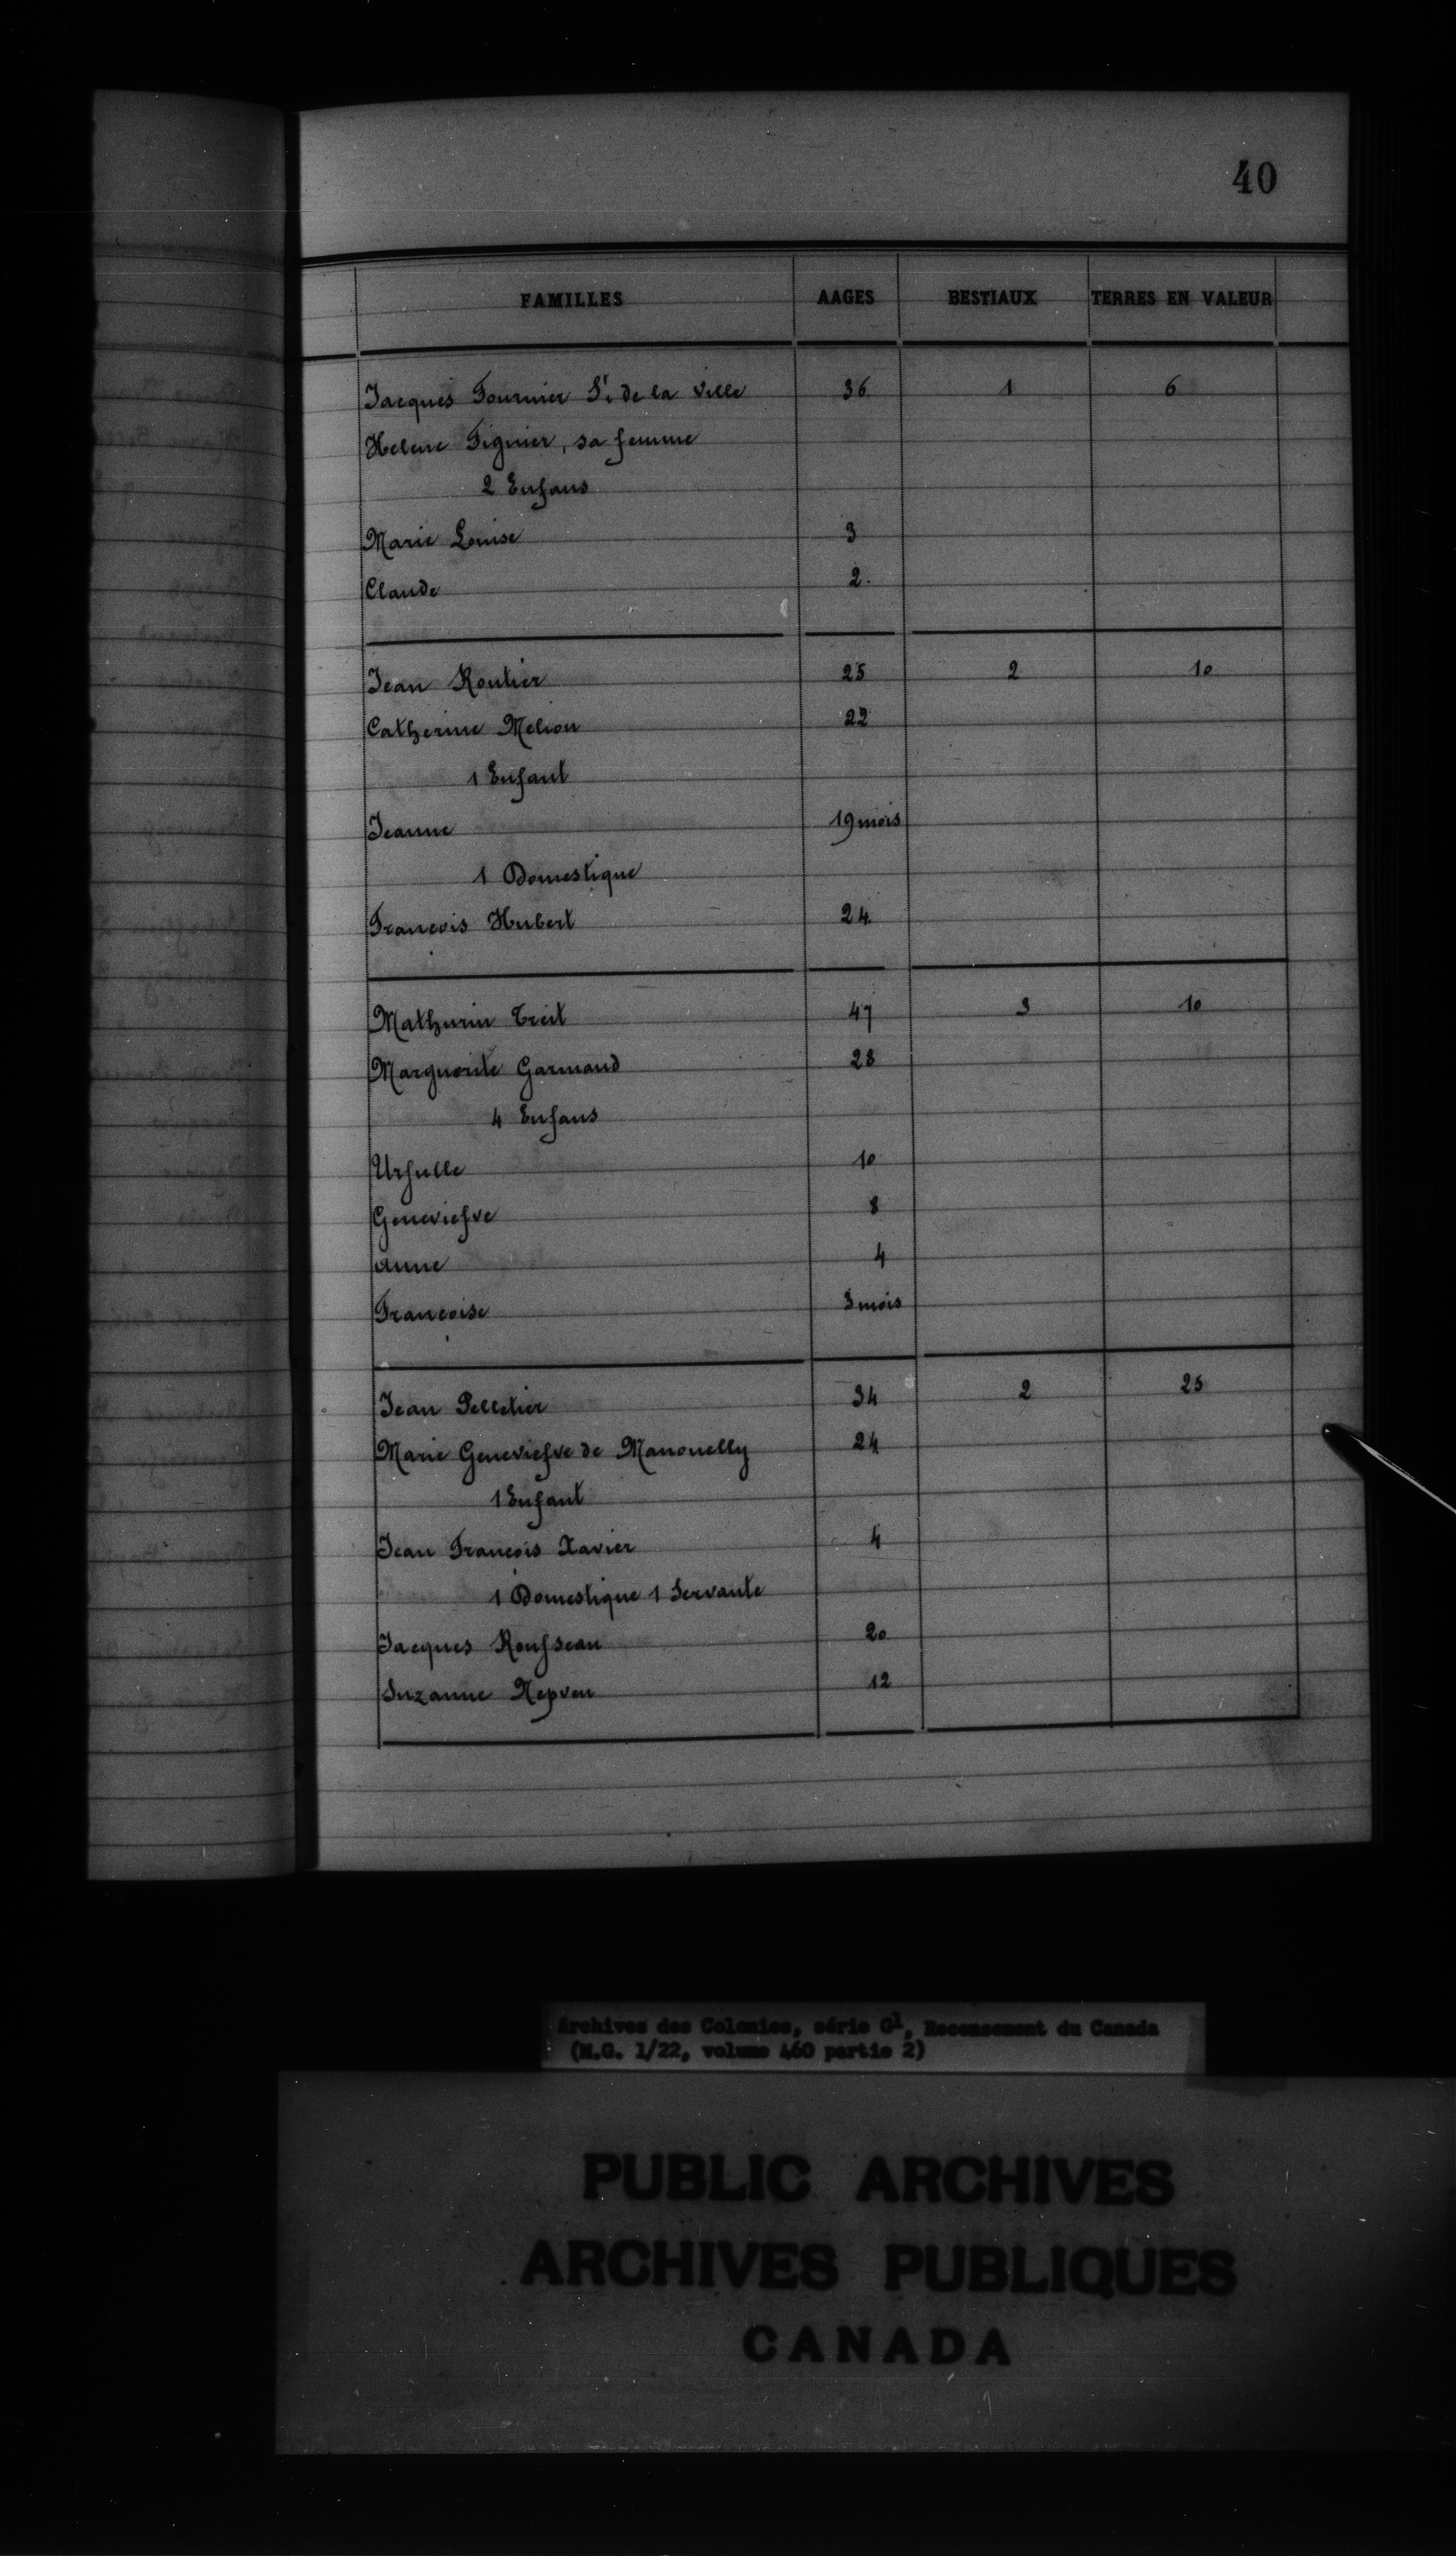 40
FAMILLES AAGES BESTIAUX TERRES EN VALEUR
Jacques Fournier Sr. de la Ville 36 1 6
Helene Fignier, sa femme
2 Enfans
Marie Louise 3
Claude 2.
Jean Routier 25 2 10
Catherine Melion 22
1 Enfant
Jeanne 19 mois
1 Domestique
François Hubert 24
Mathurin Treit 47 3 10
Marguerite Garmand 28
4 Enfans
Ursulle 10
Geneviesve 8
Anne 4
Françoise 3 mois
Jean Pelletier 34 2 25
Marie Geneviesve de Manouelly 24
1 Enfant
Jean François Xavier 4
1 Domestique 1 Servante
Jacques Rousseau 20
Suzanne Nepveu 12
Archives des Colonies, série G1, Recensement du Canada
(M.G. 1/22, volume 460 partie 2)
PUBLIC ARCHIVES
ARCHIVES PUBLIQUES
CANADA